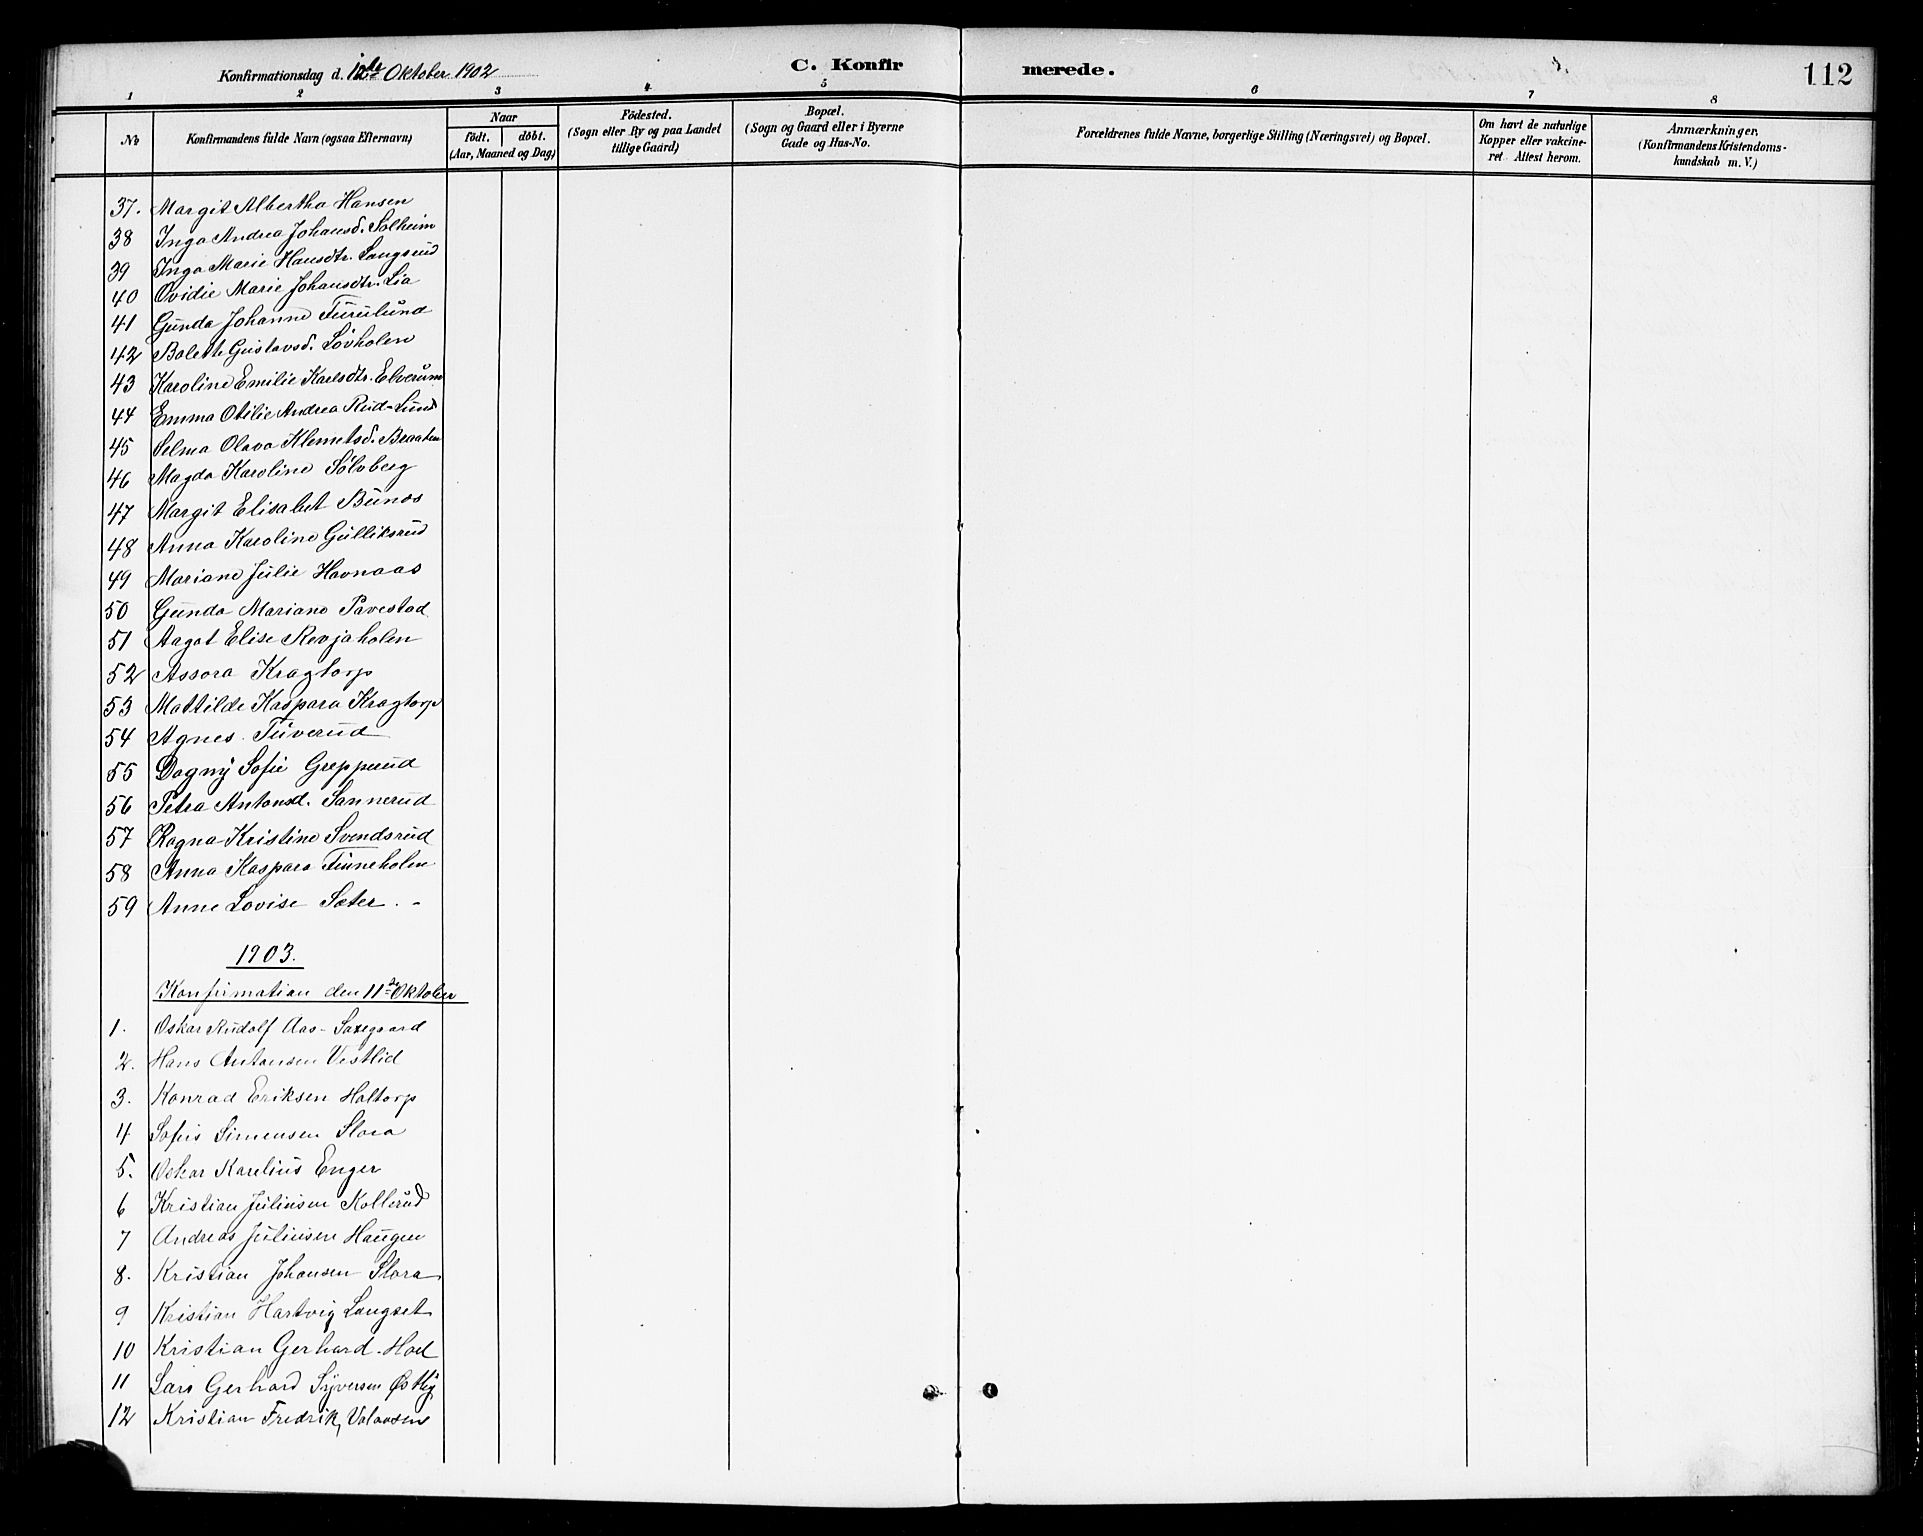 Konfirmationsdag d. 12te Oktober 1902
C. Konfirmerede.
112
1 2 3 4 5 6 7 8
No
Konfirmandens fulde Navn (ogsaa Efternavn)
Naar
født. døbt.
(Aar, Maaned og Dag)
Födested.
(Sogn eller By og paa Landet
tillige Gaard)
Bopæl.
(Sogn og Gaard eller i Byerne
Gade og Hus-No.
Forældrenes fulde Navne, borgerlige Stilling (Næringsvei) og Bopæl.
Om havt de naturlige
Kopper eller vakcine-
ret. Attest herom.
Anmærkninger.
(Konfirmandens Kristendoms-
kundskab m. V.)
37. Margit Albertha Hansen
38 Inga Andrea Johansd. Solheim
39 Inga Marie Hansdtr. Langsrud
40 Ovidie Marie Johansdtr. Lia
41 Gunda Johanne Furulund
42 Bolette Gustavsd. Løvholen
43 Karoline Emilie Karlsdtr. Elverum
44 Emma Otilie Andrea Rud-Lund
45 Selma Olava Klemetsd. Braaten
46 Magda Karoline Sølvberg
47 Margit Elisabet Bunæs
48 Anna Karoline Gulliksrud
49 Mariane Julie Havnaas
50 Gunda Mariane Tavestad
51 Aagot Elise Revjaholen
52 Assora Kragtorp
53 Mattilde Kaspara Kragtorp
54 Agnes Tuverud
55 Dagny Sofie Grepperud
56 Petra Antonsd. Sannerud
57 Ragna Kristine Svendsrud
58 Anna Kaspara Finneholen
59 Anne Lovise Sæter. -
1903.
Konfirmation den 11te Oktober
1. Oskar Rudolf Aas-Saxegaard
2. Hans Antonsen Vestlid
3. Konrad Eriksen Holtorp
4 Sofus Simensen Slora
5. Oskar Karelius Enger
6 Kristian Juliusen Kollerud
7 Andreas Juliusen Haugen
8. Kristian Johansen Slora
9 Kristian Hartvig Langset
10 Kristian Gerhard Hoel
11 Lars Gerhard Syversen Østby
12 Kristian Fredrik